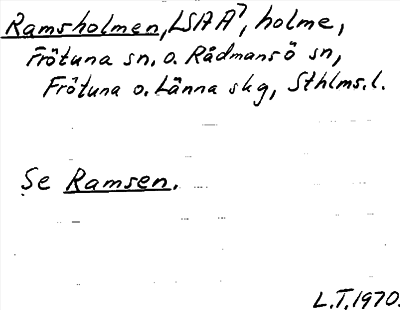 Ramsholmen, LSAA7, holme,
Frötuna sn. o. Rådmansö sn,
Frötuna o. Länna skg, Sthlms. l.
Se Ramsen.
L.T. 1970.